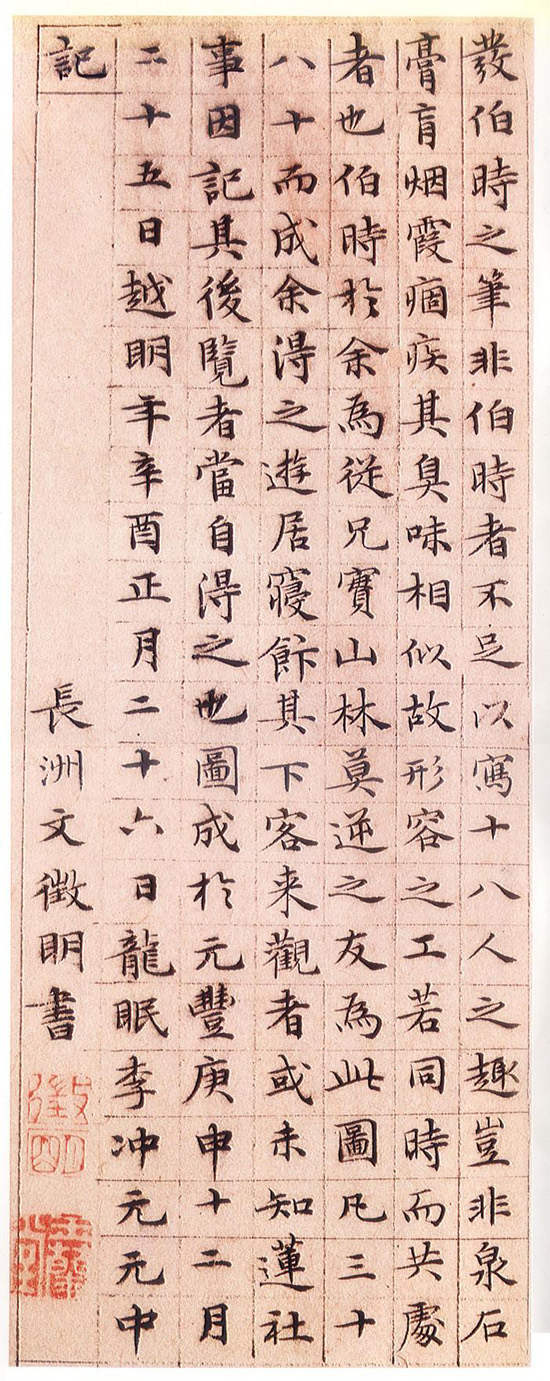 發伯時之筆非伯時者不足以寫十八人之趣豈非泉石
膏肓烟霞痼疾其臭味相似故形容之工若同時而共處
者也伯時於余為從兄寶山林莫逆之友為此圖凡三十
八十而成余得之遊居寢飰其下客来觀者或未知蓮社
事因記其後覽者當自得之也圖成於元豐庚申十二月
二十五日越明年辛酉正月二十六日龍眠李冲元元中
記
長洲文徵明書
徵明